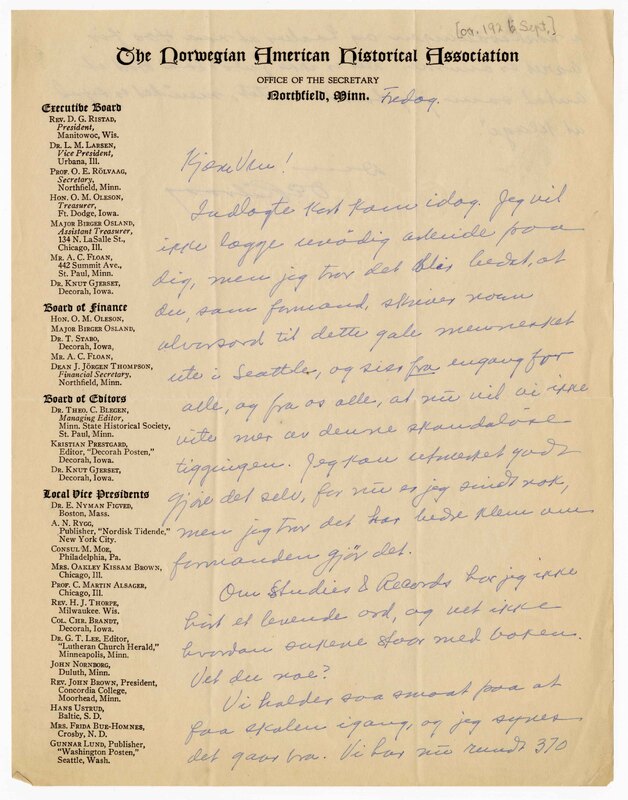 [ca. 1926 Sept.]
The Norwegian American Historical Association
OFFICE OF THE SECRETARY
Northfield, Minn.
Fredag.
Executive Board
REV. D. G. RISTAD,
President,
Manitowoc, Wis.
DR. L. M. LARSEN,
Vice President,
Urbana, Ill.
PROF. O. E. RÖLVAAG,
Secretary,
Northfield, Minn.
HON. O. M. OLESON,
Treasurer,
Ft. Dodge, Iowa.
MAJOR BIRGER OSLAND,
Assistant Treasurer,
134 N. LaSalle St.,
Chicago, Ill.
MR. A. C. FLOAN,
442 Summit Ave.,
St. Paul, Minn.
DR. KNUT GJERSET,
Decorah, Iowa.
Board of Finance
HON. O. M. OLESON,
MAJOR BIRGER OSLAND,
DR. T. STABO,
Decorah, Iowa,
MR. A. C. FLOAN,
DEAN J. JÖRGEN THOMPSON,
Financial Secretary,
Northfield, Minn.
Board of Editors
DR. THEO. C. BLEGEN,
Managing Editor,
Minn. State Historical Society,
St. Paul, Minn.
KRISTIAN PRESTGARD,
Editor, "Decorah Posten,"
Decorah, Iowa.
DR. KNUT GJERSET,
Decorah, Iowa.
Local Vice Presidents
DR. E. NYMAN FIGVED,
Boston, Mass.
A. N. RYGG,
Publisher, "Nordisk Tidende,"
New York City.
CONSUL M. MOE,
Philadelphia, Pa.
MRS. OAKLEY KISSAM BROWN,
Chicago, Ill.
PROF. C. MARTIN ALSAGER,
Chicago, Ill.
REV. H. J. THORPE,
Milwaukee, Wis.
COL. CHR. BRANDT,
Decorah, Iowa.
DR. G. T. LEE, Editor,
"Lutheran Church Herald,"
Minneapolis, Minn.
JOHN NORNBORG,
Duluth, Minn.
REV. JOHN BROWN, President,
Concordia College,
Moorhead, Minn.
HANS USTRUD,
Baltic, S. D.
MRS. FRIDA BUE-HOMNES,
Crosby, N. D.
GUNNAR LUND, Publisher,
"Washington Posten,"
Seattle, Wash.
Kjære Ven!
Indlagte kort kom idag. Jeg vil
ikke lægge unödig arbeide paa
dig, men jeg tror det blir bedst, at
du, som formand, skriver noen
alvorsord til dette gale mennesket
ute i Seattle, og siss fra engang for
alle, og fra os alle, at nu vil vi ikke
vite mer av denne skandalöse
tiggingen. Jeg kan utmerket godt
gjöre det selv, for nu er jeg sindt nok,
men jeg tror det har bedre klem om
formanden gjör det.
Om Studies & Records har jeg ikke
hört et levende ord, og vet ikke
hvordan sakene staar med boken.
Vet du noe?
Vi holder saa smaat paa at
faa skolen igang, og jeg synes
det gaar bra. Vi har nu rundt 370